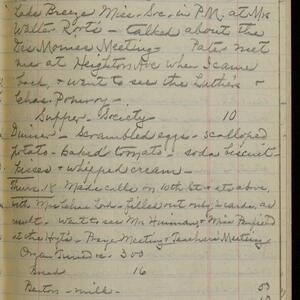 Lake Breeze Miss. Soc. in P.M. at Mrs
Walter Root's - talked about the
Des Moines Meeting - Pater met
me at Heighton Ave when I came
back, & went to see the Luthers &
Chas. Pomroy.
Supper - Society - 10
Dinner - Scrambled eggs - scalloped
potato - baked tomato - soda biscuit -
& whipped cream -
Thurs. 18. Made calls on 10th st & sts above,
with Mrs - filled out only cards, as
went to see Mr & Miss
at the Hoyts. Prayer Meeting & Teachers' Meeting
Organ tuned 300
Bread 16
- milk -